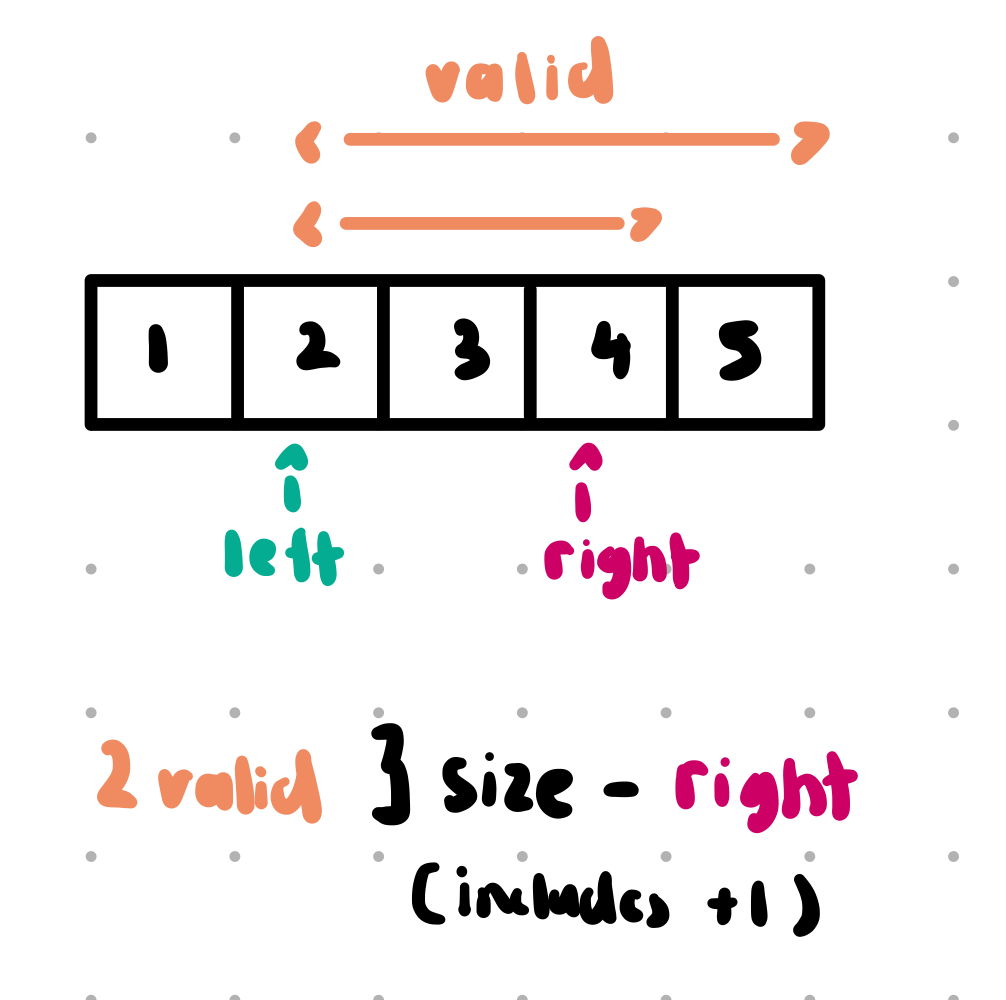 valid
1 2 3 4 5
left right
2 valid } size - right
(includes +1)